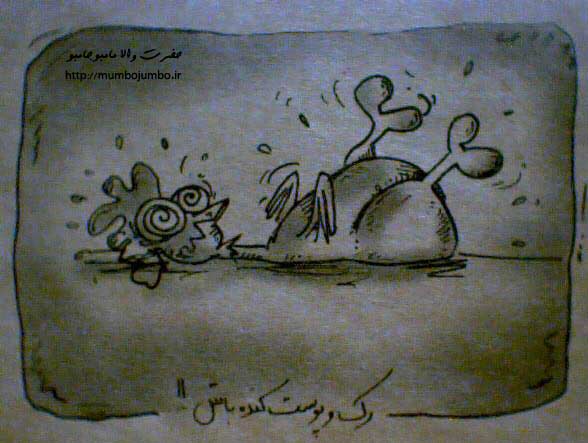 حضرت والا مامبوجامبو
http://mumbojumbo.ir
رک و پوست کنده باش !!